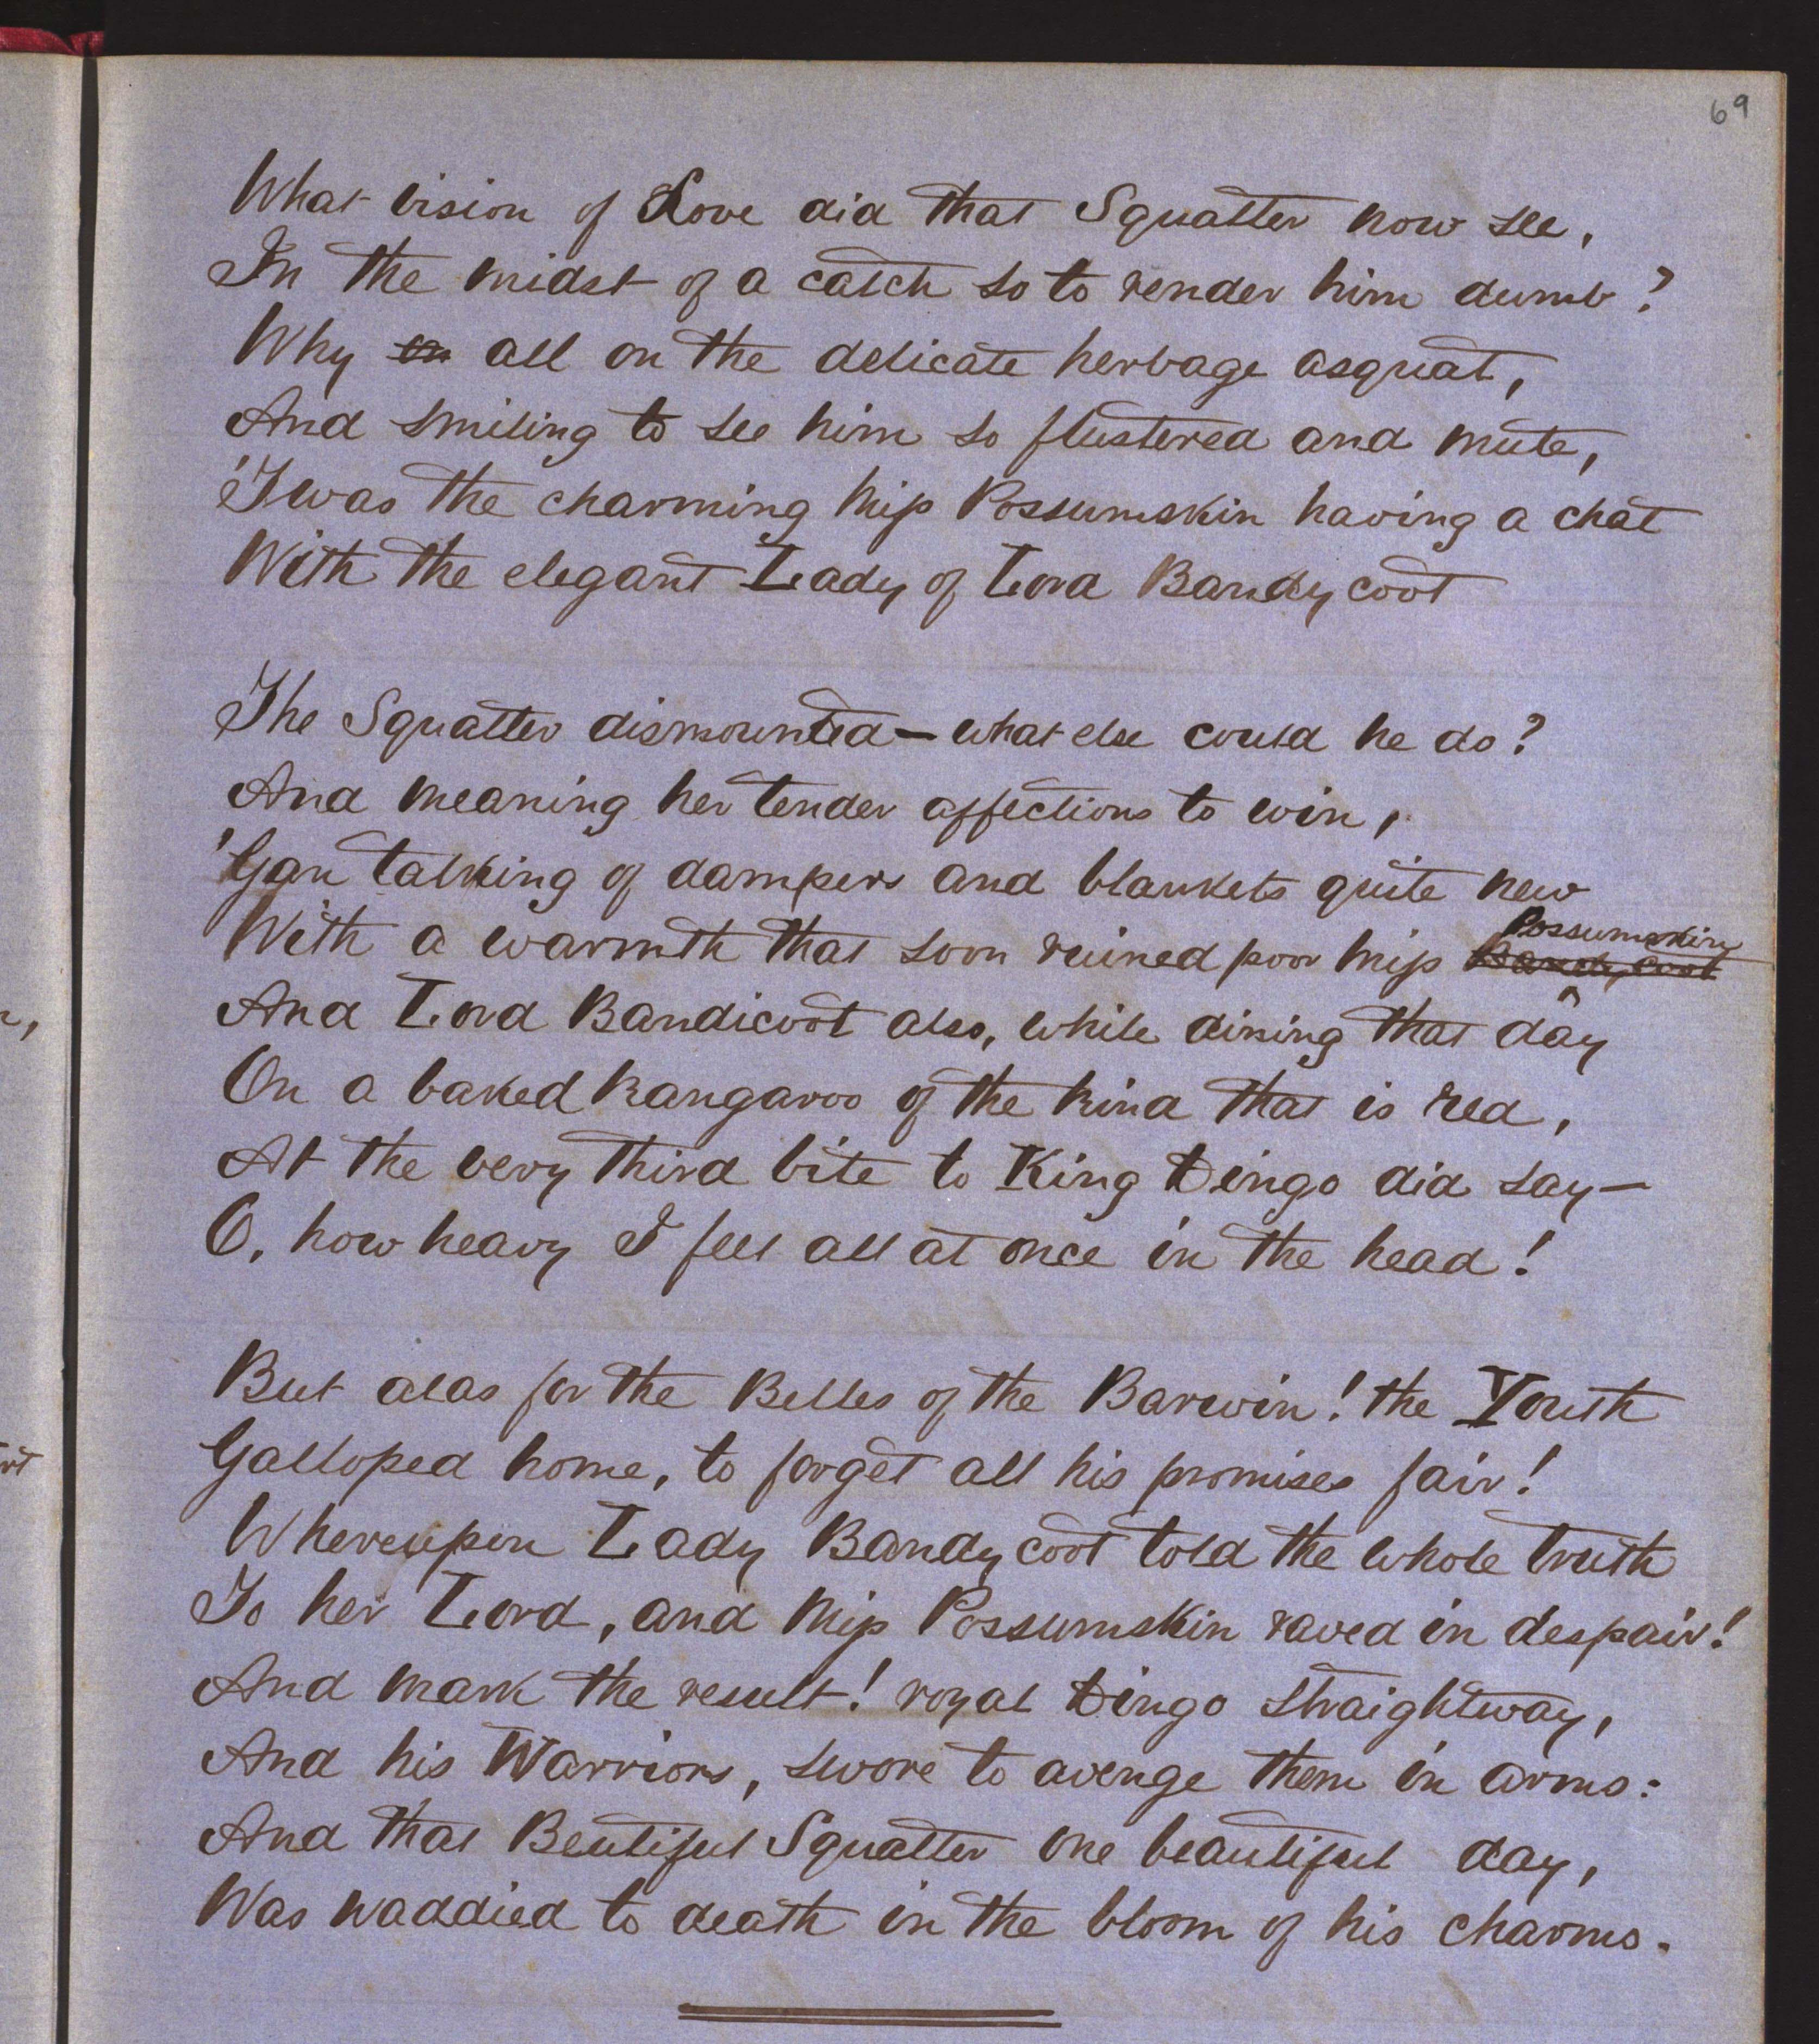 69
What vision of Love did that Squatter now see,
In the midst of a catch so to render him dumb?
Why on all on the delicate herbage asquat,
And smiling to see him so flustered and mute,
'Twas the charming Miss Possumskin having a chat
With the elegant Lady of Lord Bandycoot
The Squatter dismounted—what else could he do?
And meaning her tender affections to win,
'Gan talking of dampers and blankets quite new
Possumskin
With a warmth that soon ruined poor Miss Bandycoot
And Lord Bandicoot also, while dining that day
On a baked Kangaroo of the kind that is red,
At the very third bite to King Dingo did say—
O, how heavy I feel all at once in the head!
But alas for the Belles of the Barwin! the Youth
Galloped home, to forget all his promises fair!
Whereupon Lady Bandycoot told the whole truth
To her Lord, and Miss Possumskin raved in despair!
And mark the result! royal Dingo straightway,
And his Warriors, swore to avenge them in arms:
And that Beutiful Squatter one beautiful day,
Was waddied to death in the bloom of his charms.